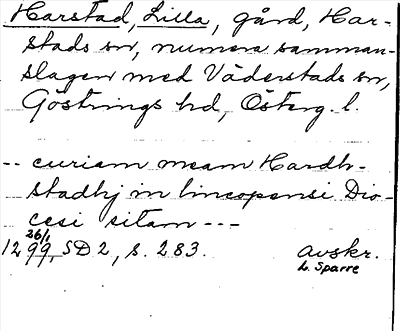 Harstad, Lilla, gård, Har-
stads sn, numera samman-
slagen med Väderstads sn,
Göstrings hd, Österg. l.
-- curiam meam Hardh-
stadhj in lincopensi Dio-
cesi sitam ---
26/1
1299, SD 2, s. 283. avskr.
L. Sparre